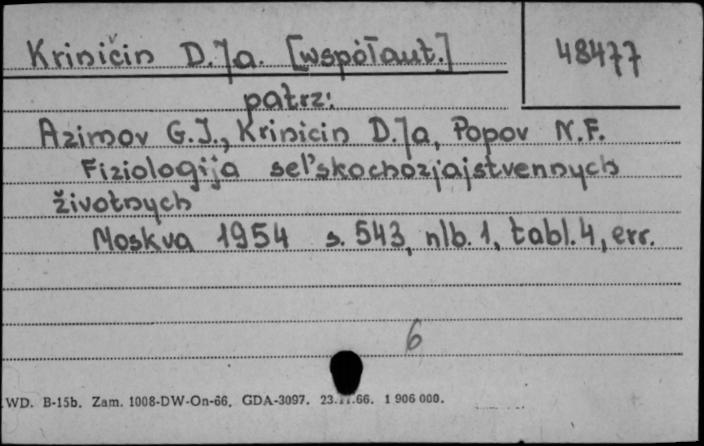 Kriničin D.Ja. [współaut.]
48477
patrz:
Azimov G.I., Krinicin D.Ja, Popov N.F.
Fiziologija sel'skochozjajstvennych
životnych
Moskva 1954 s. 543, nlb. 1, tabl. 4, err.
6
WD. B-15b. Zam. 1008-DW-On-66. GDA-3097. 23.11.66. 1 906 000.